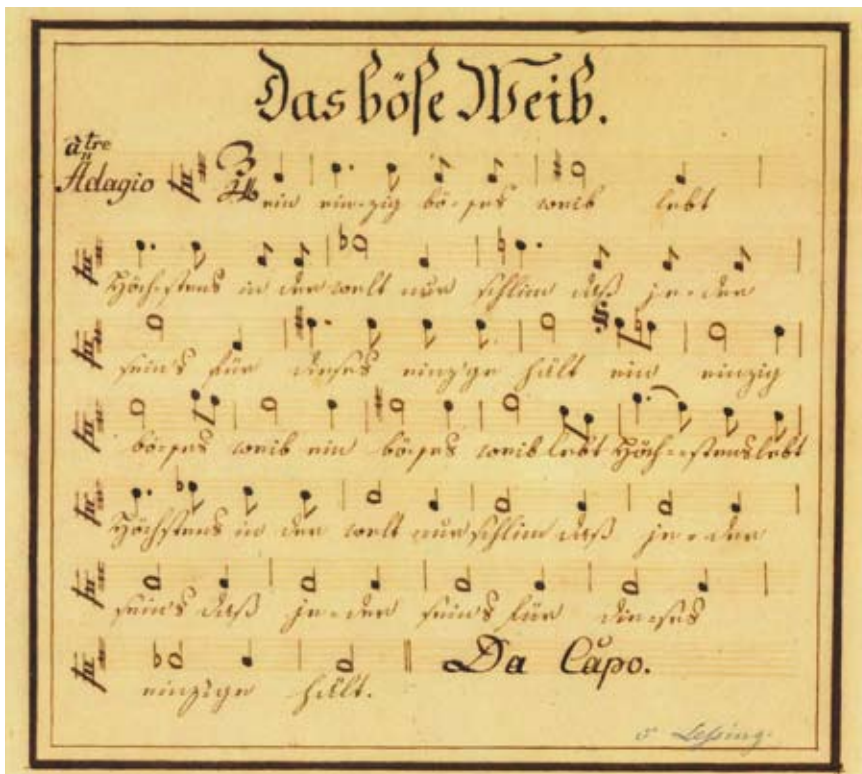 Das böse Weib.
à tre
Adagio
3/4
ein ein-zig bö-ses weib lebt
Höch-stens in der welt nur schlim daß je-der
sein's für dieses einz'ge hält ein einzig
bö-ses weib ein bö-ses weib lebt Höch-stens lebt
Höchstens in der welt nur schlim daß je-der
sein's daß je-der sein's für die-ses
einzige hält. Da Capo.
v Lessing.